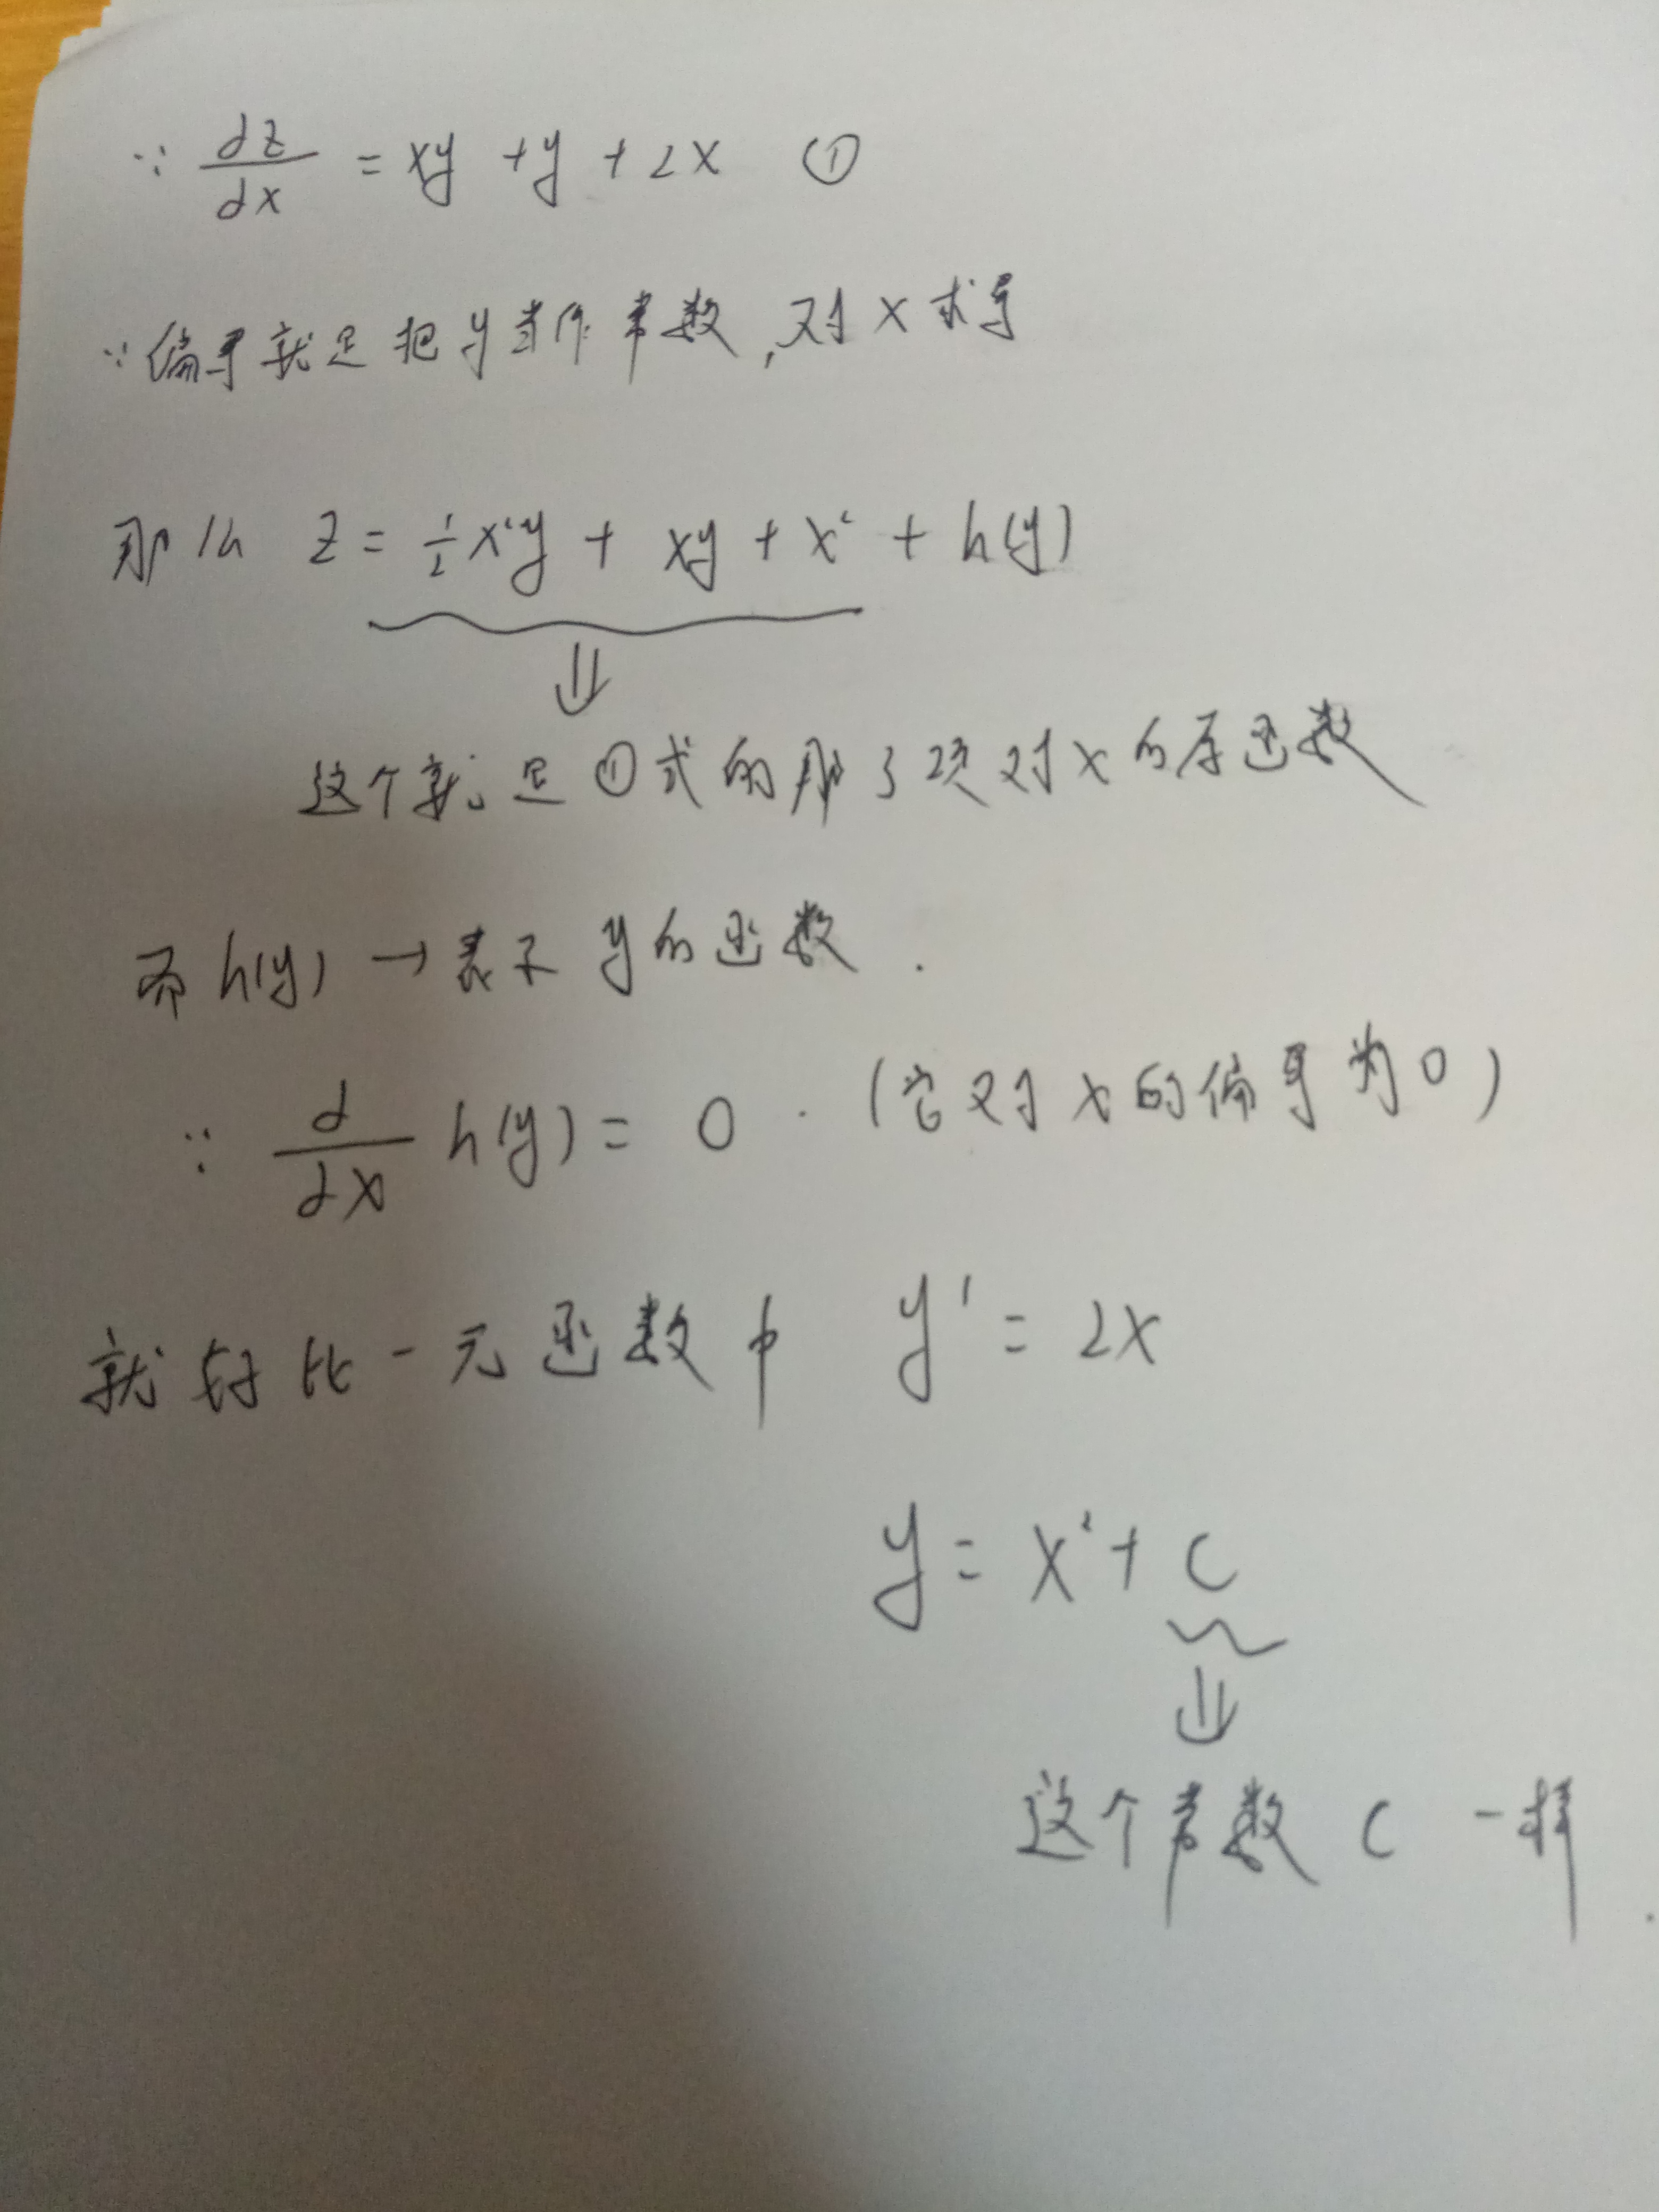 ∵ ∂z/∂x = xy + y + 2x ①
∵ 偏导就是把y当作常数,对x求导
那么 z = ½x²y + xy + x² + h(y)
⇓
这个就是①式的那3项对x的原函数
而h(y) → 表示y的函数.
∵ ∂/∂x h(y) = 0. (它对x的偏导为0)
就好比一元函数中 y' = 2x
y = x² + c
⇓
这个常数c一样.